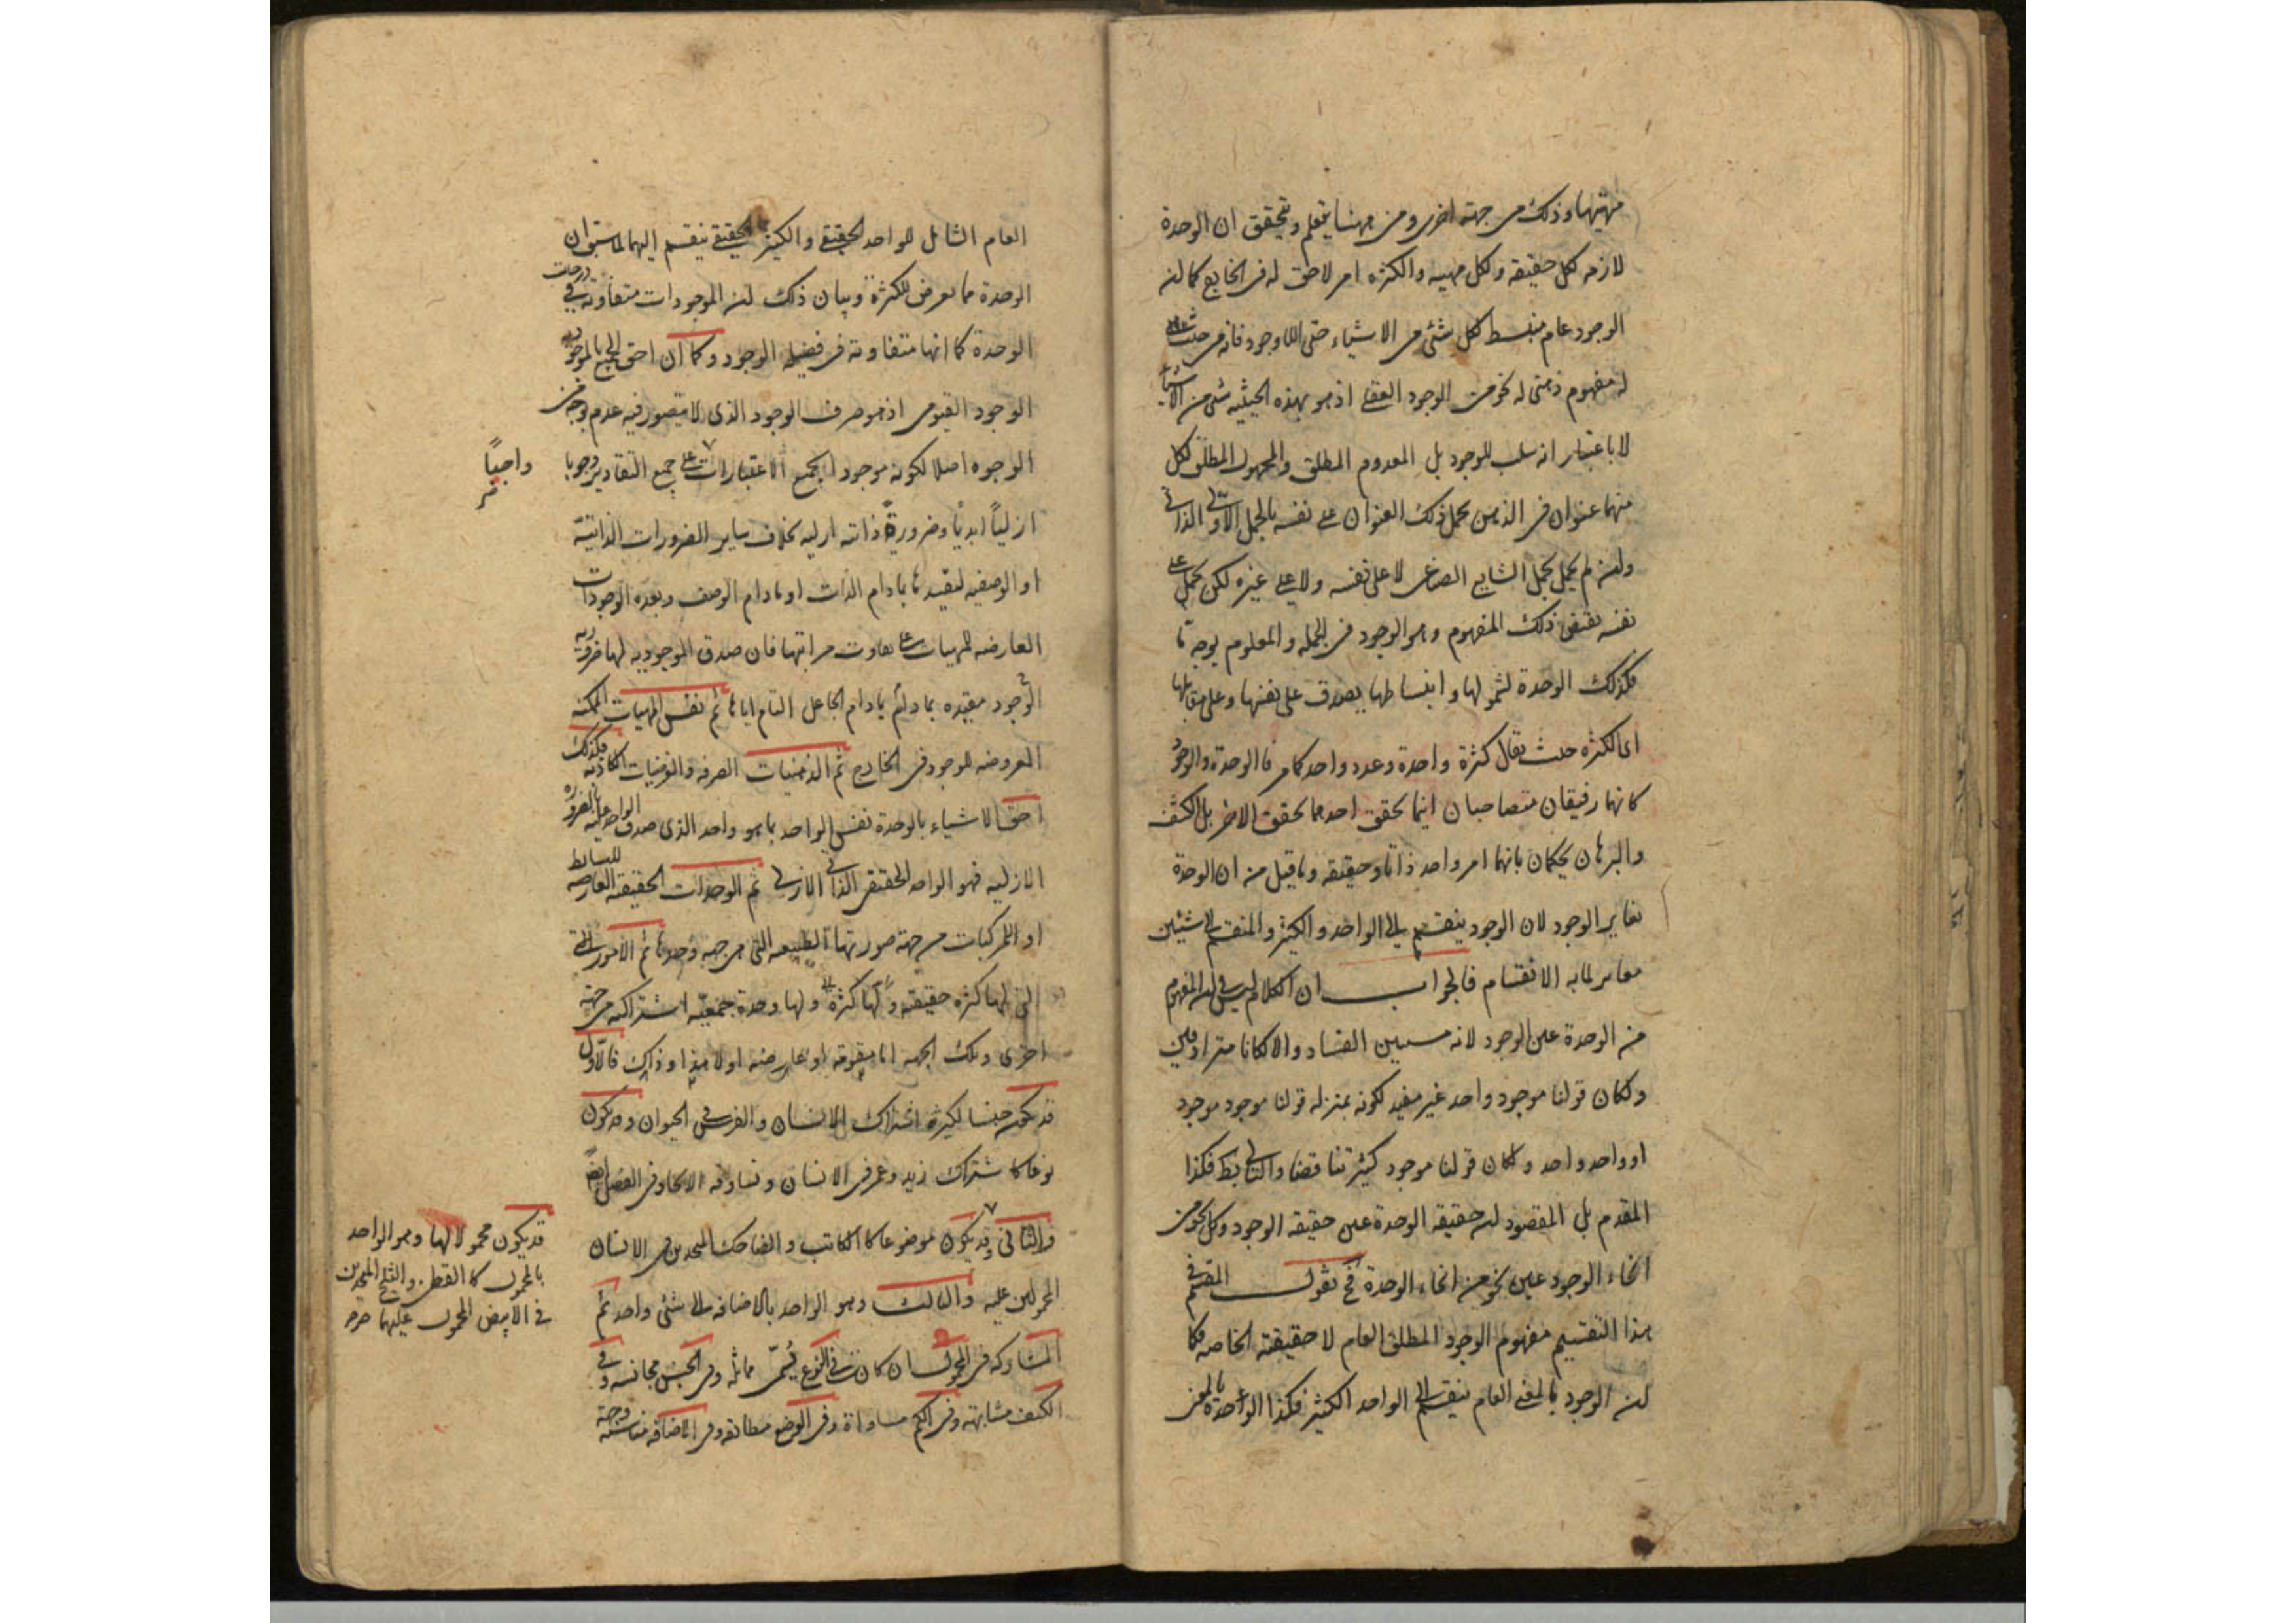 مهيتها وذلك من جهة اخرى ومن ههنا يتعلم ويتحقق ان الوحدة
لازمه لكل حقيقه ولكل مهيه والكثره امر لاحق له فى الخارج كما ان
الوجود عام منبسط لكل شئ من الاشياء حتى اللاوجود فانه من حيث
له مفهوم ذهنى له نحو من الوجود العقلى اذ هو بهذه الحيثيه شئ من الاشياء
لا باعتبار انه سلب للوجود بل المعدوم المطلق والمجهول المطلق لكل
منهما عنوان فى الذهن يحمل ذلك العنوان على نفسه بالحمل الاولى الذاتى
وان لم يحمل بحمل الشايع الصناعى لا على نفسه ولا على غيره لكن يحمل على
نفسه نقيض ذلك المفهوم وهو الوجود فى الجمله والمعلوم بوجه ما
فكذلك الوحدة لشمولها وانبساطها يصدق على نفسها وعلى مقابلها
اى الكثره حيث يقال كثرة واحدة وعدد واحد كما مر فالوحدة والوجود
كانهما رفيقان متصاحبان اينما تحقق احدهما تحقق الاخر بل الكشف
والبرهان يحكمان بانهما امر واحد ذاتا وحقيقه وما قيل من ان الوحدة
تغاير الوجود لان الوجود ينقسم الى الواحد والكثير والمنقسم الى شيئين
مغاير لما به الانقسام فالجواب ان الكلام ليس فى ان المفهوم
من الوحدة عين الوجود لانه مستبين الفساد والا لكانا مترادفين
ولكان قولنا موجود واحد غير مفيد لكونه بمنزله قولنا موجود موجود
او واحد واحد ولكان قولنا موجود كثير تناقضا والتالى بط فكذا
المقدم بل المقصود ان حقيقه الوحدة عين حقيقه الوجود وكل نحو من
انحاء الوجود عين نحو من انحاء الوحدة فح نقول المقسم فى
هذا التقسيم مفهوم الوجود المطلق العام لا حقيقته الخاصه فكما
ان الوجود بالمعنى العام ينقسم الى الواحد الكثير فكذا الواحد بالمعنى
العام الشامل للواحد الحقيقى والكثير الحقيقى ينقسم اليهما لما سبق ان
الوحدة مما يعرض للكثرة وبيان ذلك ان الموجودات متفاوتة فى درجات
الوحدة كما انها متفاوته فى فضيله الوجود وكما ان احق الجميع بالموجوديه
الوجود القيومى اذ هو صرف الوجود الذى لا يتصور فيه عدم بوجه من
الوجوه اصلا لكونه موجودا بجميع الاعتبارات على جميع التقادير وجوبا
ازلياً ابدياً وضرورية ذاته ازليه بخلاف ساير الضرورات الذاتية
او الوصفيه لتقيدها بما دام الذات او ما دام الوصف وبعده الوجودات
العارضه للمهيات على تفاوت مراتبها فان صدق الموجوديه لها ضروريه
الوجود مقيده بما دام الجاعل التام اياها ثم نفس المهيات الممكنه
المعروضه للوجود فى الخارج ثم الذهنيات الصرفه والفرضيات الكاذبه فكذلك
احق الاشياء بالوحدة نفس الواحد بما هو واحد الذى صدق الواحد عليه بالضروره
الازليه فهو الواحد الحقيقى الذاتى الازلى ثم الوحدات الحقيقه العارضه للبسائط
او المركبات من جهة صورتها الطبيعه التى هى جهه وحدتها ثم الامور
التى لها كثره حقيقته ولها وحدة جمعيّه اشتراكيه من جهة
اخرى وتلك الجهه اما مقومه او عارضه او لا هذا وذاك فالاول
قد يكون جنسا لكثيره اشتراك الانسان والفرس فى الحيوان وقد يكون
نوعا كاشتراك زيد وعمرو فى الانسان وتساوقه الاتحاد فى الفصل ايضاً
والثانى قد يكون موضوعا كالكاتب والضاحك المتحدين فى الانسان
المحمولين عليه والثالث وهو الواحد بالاضافه الى شئ واحد ثم
المشاركه فى المحمول ان كانت فى النوع يسمّى مماثله وفى الجنس مجانسه وفى
الكيف مشابهة وفى الكم مساواة وفى الوضع مطابقه وفى الاضافه مناسبة
واجباً
قد يكون محمولا لها وهو الواحد
بالمحمول كالقطن والثلج المتحدين
فى الابيض المحمول عليهما